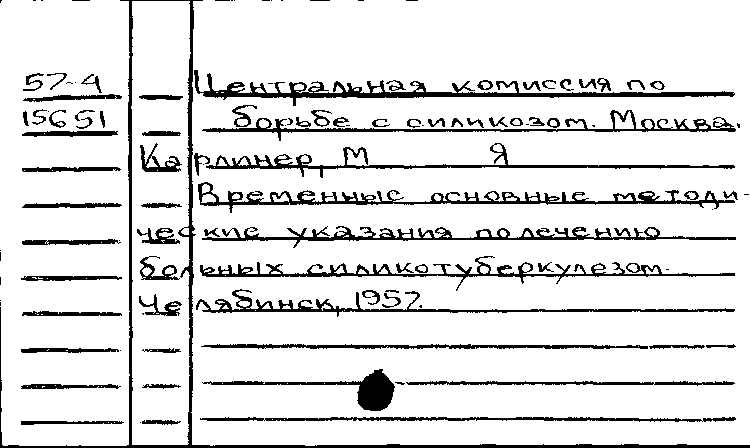 57-4 Центральная комиссия по
15651 борьбе с силикозом. Москва.
Карлинер, М Я
Временные основные методи-
ческие указания по лечению
больных силикотуберкулезом.
Челябинск, 1957.